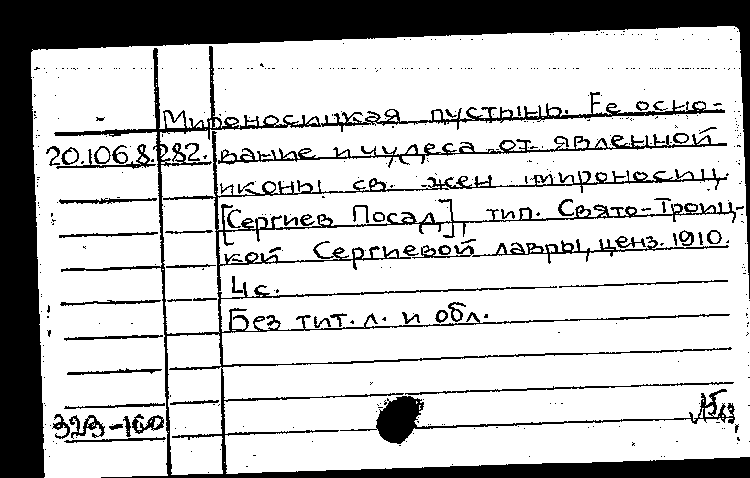 Мироносицкая пустынь. Ее осно-
20.106.8.282. вание и чудеса от явленной
иконы св. жен мироносиц.
[Сергиев Посад], тип. Свято-Троиц-
кой Сергиевой лавры, ценз. 1910.
4 с.
Без тит. л. и обл.
323-160